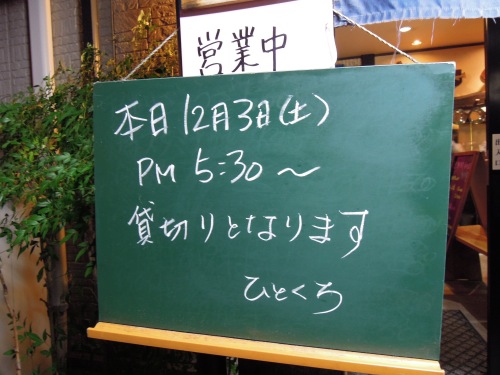 営業中
本日12月3日(土)
PM 5:30〜
貸切りとなります
ひとくち